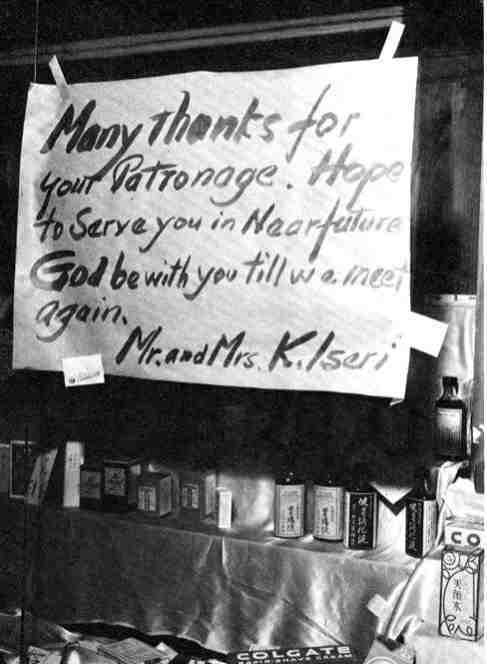 Many thanks for
your Patronage. Hope
to Serve you in Near future
God be with you till we meet
again.
Mr. and Mrs. K. Iseri
CO
COLGATE
RAPID SHAVE CREAM